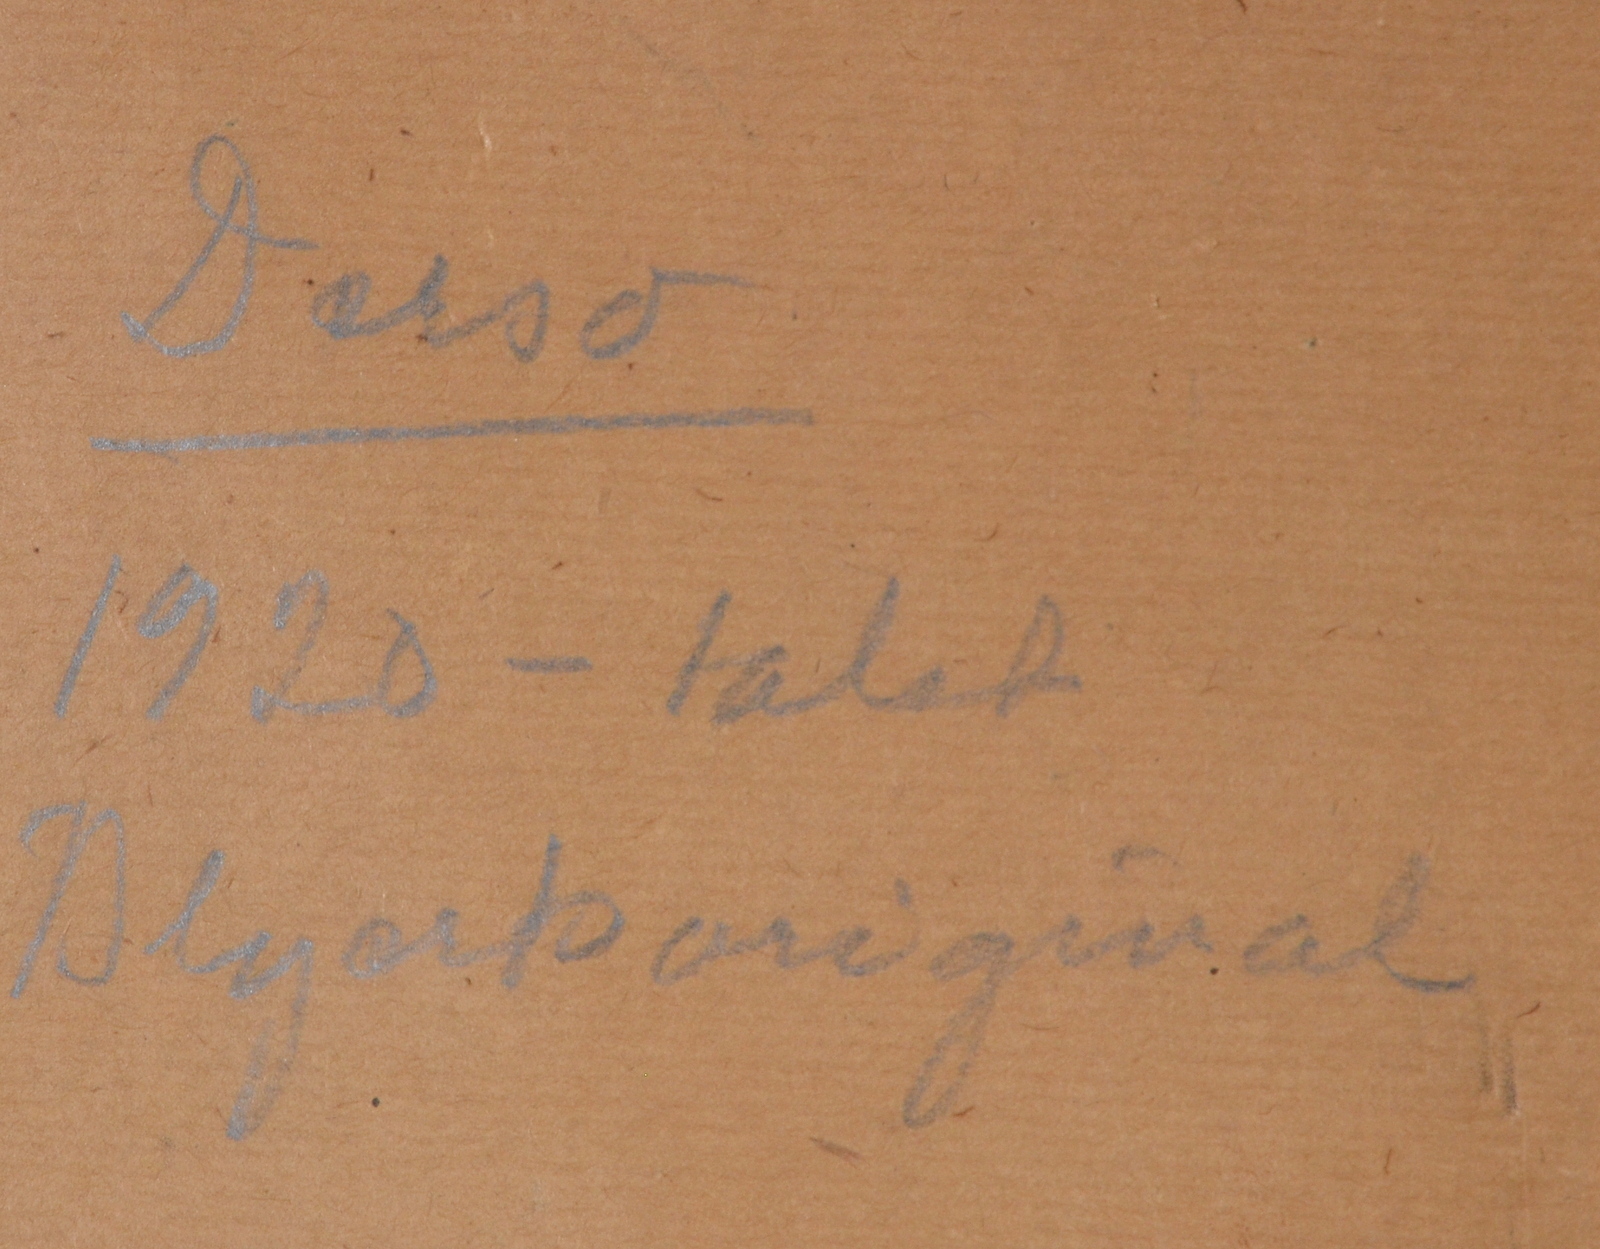 Derso
1920-talet
Blyertsoriginal